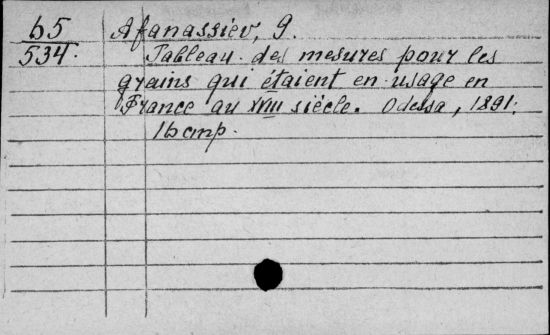 65 Afanassiev, G.
534. Tableau des mesures pour les
grains qui étaient en usage en
France au XVIII siècle. Odessa, 1891.
16 стр.